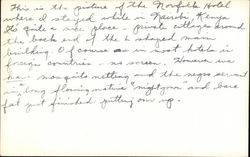 This is the picture of the Norfolk Hotel
where I stayed while in Nairobi Kenya
Its quite a nice place - private cottages around
the back end of the L shaped main
building. Of course as in most hotels in
foreign countries - no screen. However we
had mosquito netting and the negro servant
in long flowing native "nightgown" and bare
feet just finished putting mine up.